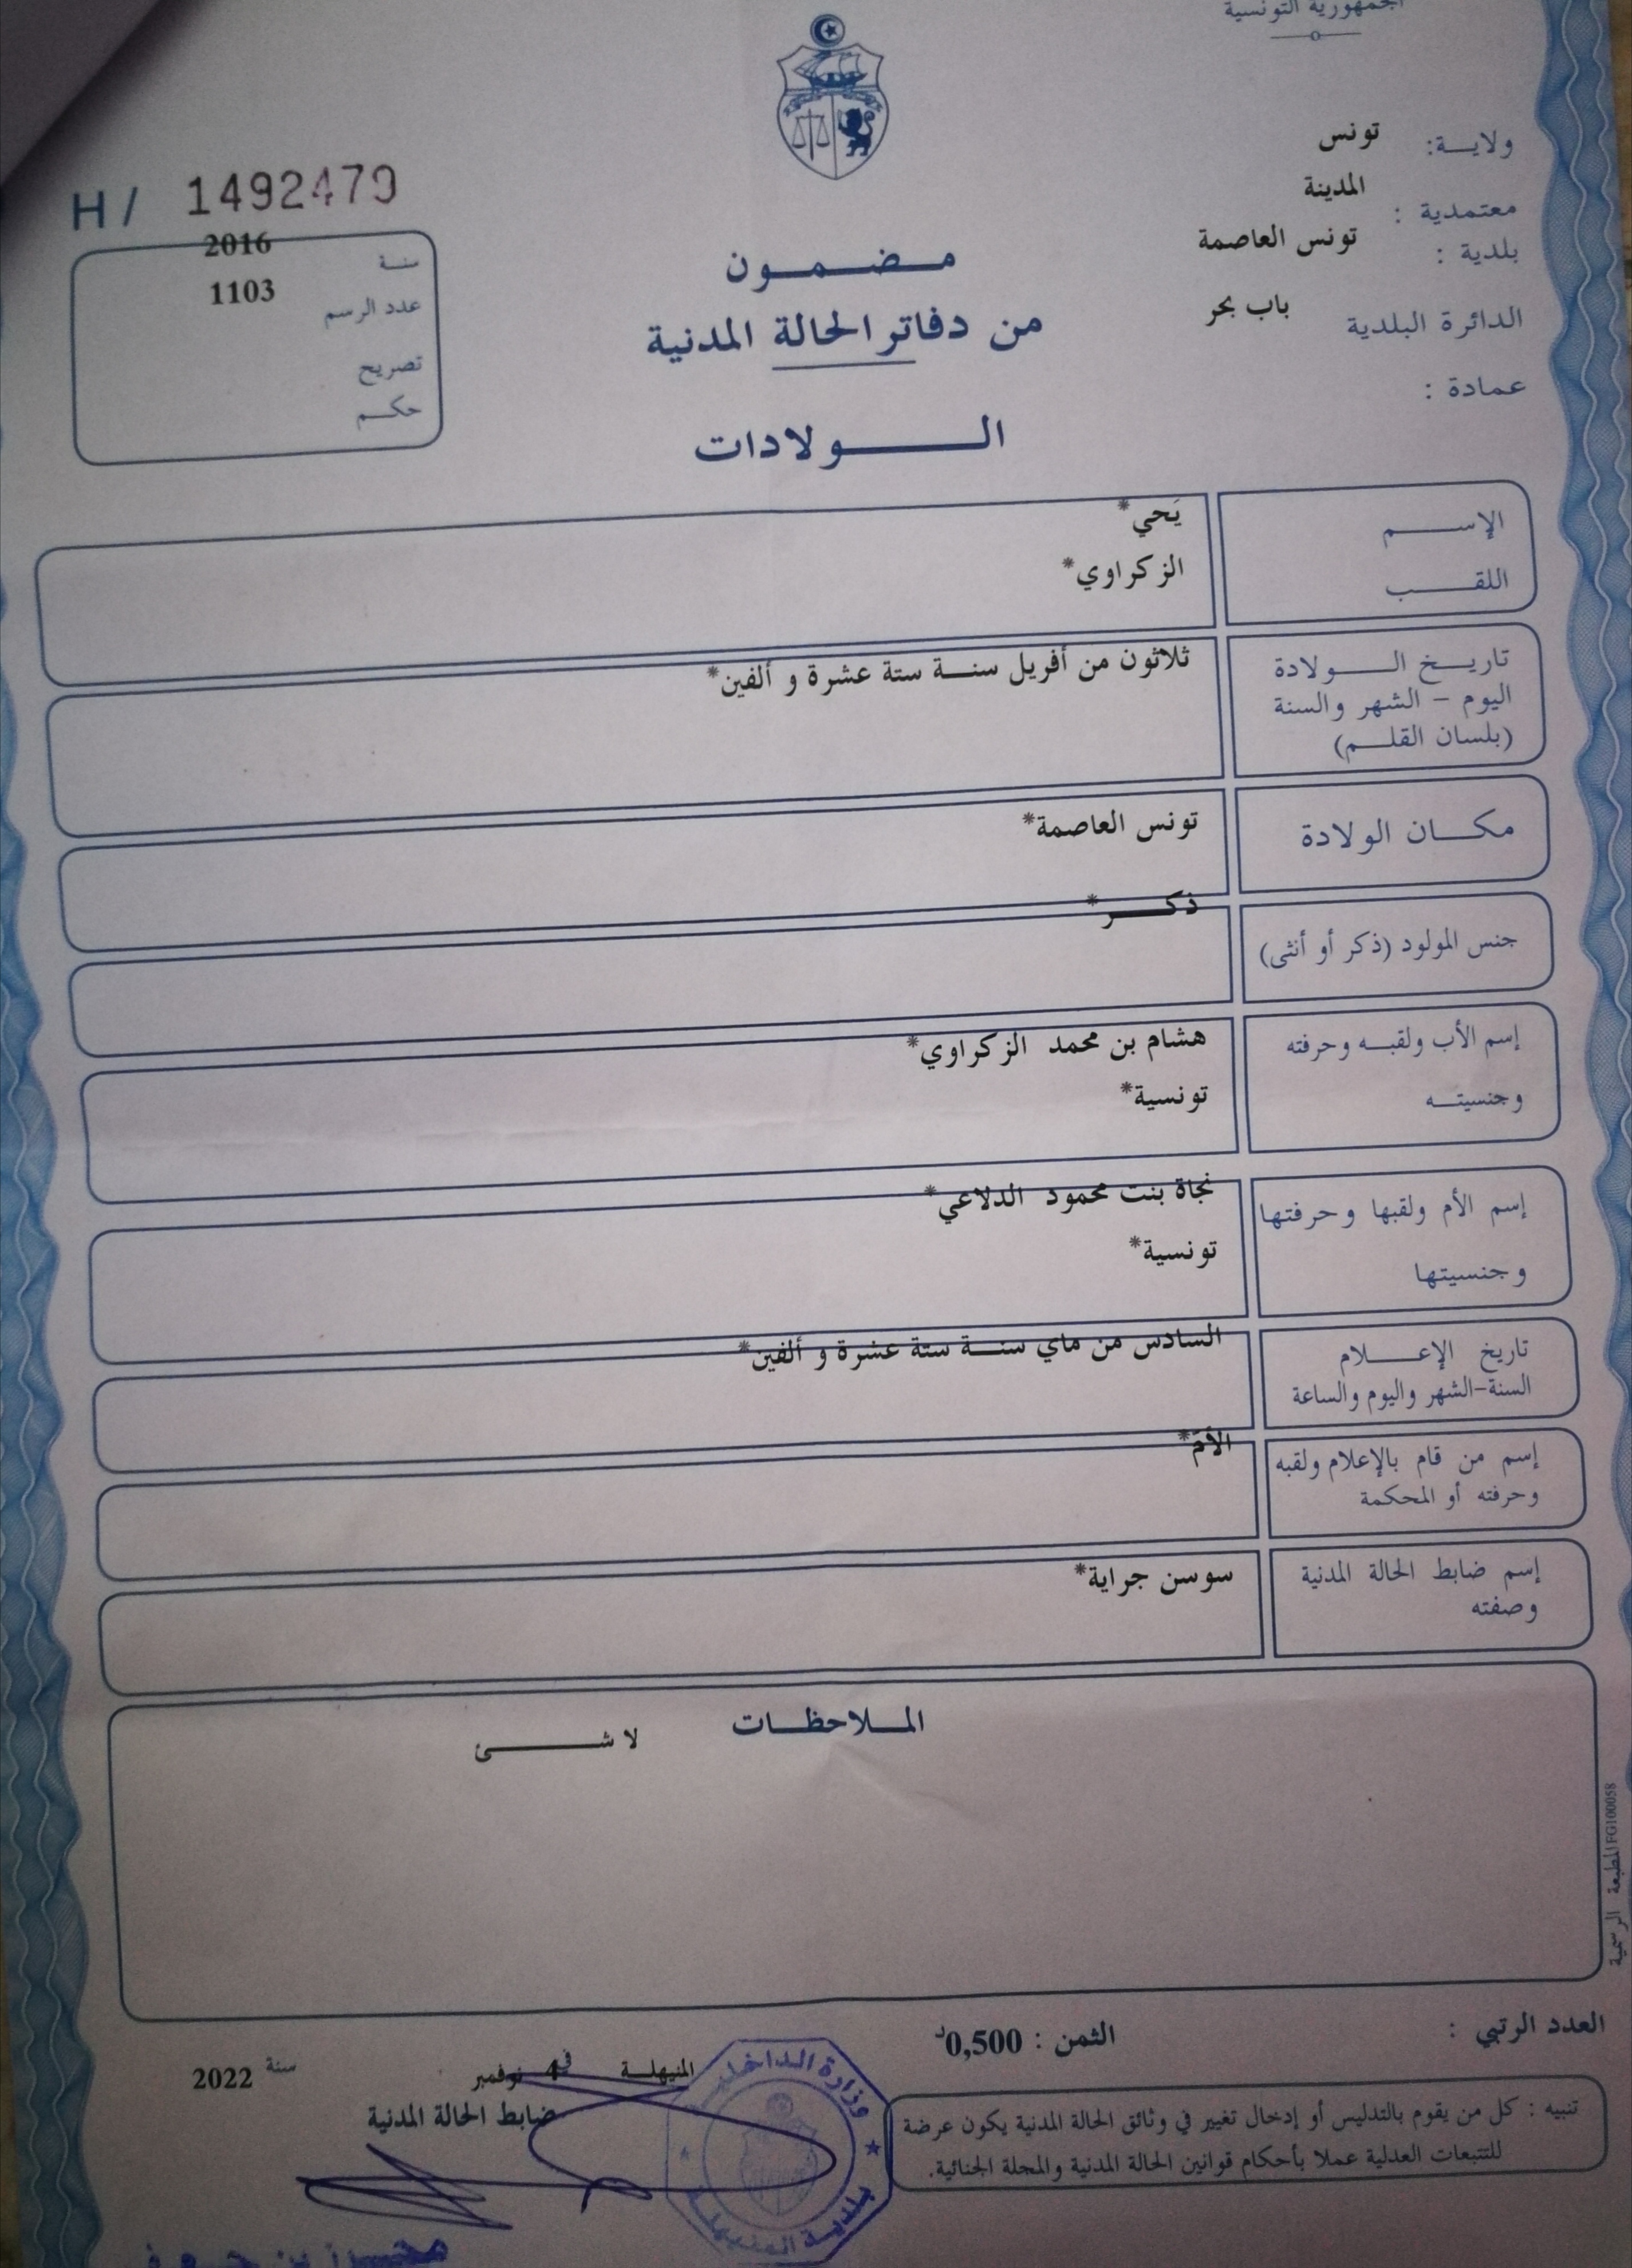 الجمهورية التونسية
ولاية: تونس
معتمدية : المدينة
بلدية : تونس العاصمة
الدائرة البلدية باب بحر
عمادة :
H / 1492479
سنة 2016
عدد الرسم 1103
تصريح
حكم
مضمون
من دفاتر الحالة المدنية
الولادات
الإسم يَحي*
اللقب الزكراوي*
تاريخ الولادة ثلاثون من أفريل سنة ستة عشرة و ألفين*
اليوم – الشهر والسنة
(بلسان القلم)
مكان الولادة تونس العاصمة*
جنس المولود (ذكر أو أنثى) ذكر*
إسم الأب ولقبه وحرفته هشام بن محمد الزكراوي*
وجنسيته تونسية*
إسم الأم ولقبها وحرفتها نجاة بنت محمود الدلاعي*
وجنسيتها تونسية*
تاريخ الإعلام السادس من ماي سنة ستة عشرة و ألفين*
السنة-الشهر واليوم والساعة
إسم من قام بالإعلام ولقبه الأمّ*
وحرفته أو المحكمة
إسم ضابط الحالة المدنية سوسن جراية*
وصفته
الملاحظات
لا شئ
المطبعة الرسمية FG100058
العدد الرتبي :
الثمن : 0,500د
المنيهلة في 4 نوفمبر سنة 2022
ضابط الحالة المدنية
وزارة الداخلية
بلدية المنيهلة
تنبيه : كل من يقوم بالتدليس أو إدخال تغيير في وثائق الحالة المدنية يكون عرضة
للتتبعات العدلية عملا بأحكام قوانين الحالة المدنية والمجلة الجنائية.